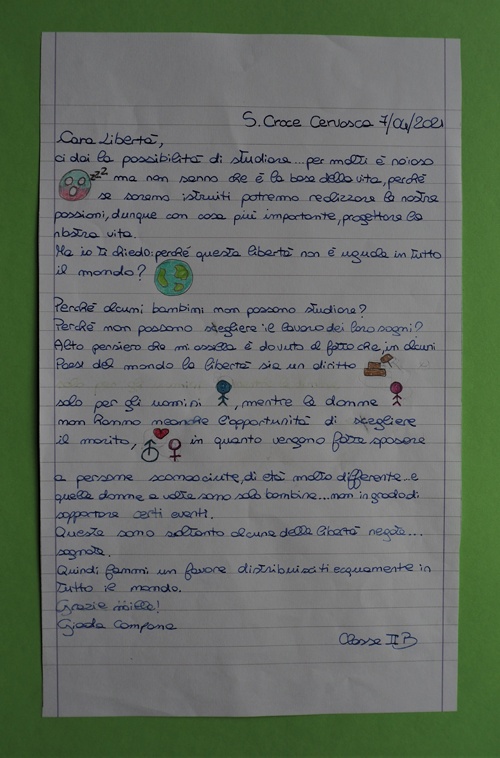 S. Croce Cervasca 7/04/2021
Cara Libertà,
ci dai la possibilità di studiare...per molti è noioso
zzz ma non sanno che è la base della vita, perché
se saremo istruiti potremo realizzare le nostre
passioni, dunque con cosa più importante, progettare la
nostra vita.
Ma io ti chiedo: perché questa libertà non è uguale in tutto
il mondo?
Perché alcuni bambini non possono studiare?
Perché non possono scegliere il lavoro dei loro sogni?
Altro pensiero che mi assilla è dovuto al fatto che, in alcuni
Paesi del mondo la libertà sia un diritto
solo per gli uomini, mentre le donne
non hanno neanche l'opportunità di scegliere
il marito, in quanto vengono fatte sposare
a persone sconosciute, di età molto differente...e
quelle donne a volte sono solo bambine...non in grado di
sopportare certi eventi.
Queste sono soltanto alcune delle libertà negate...
sognate.
Quindi fammi un favore distribuisciti equamente in
tutto il mondo.
Grazie mille!
Giada Campana
Classe II B